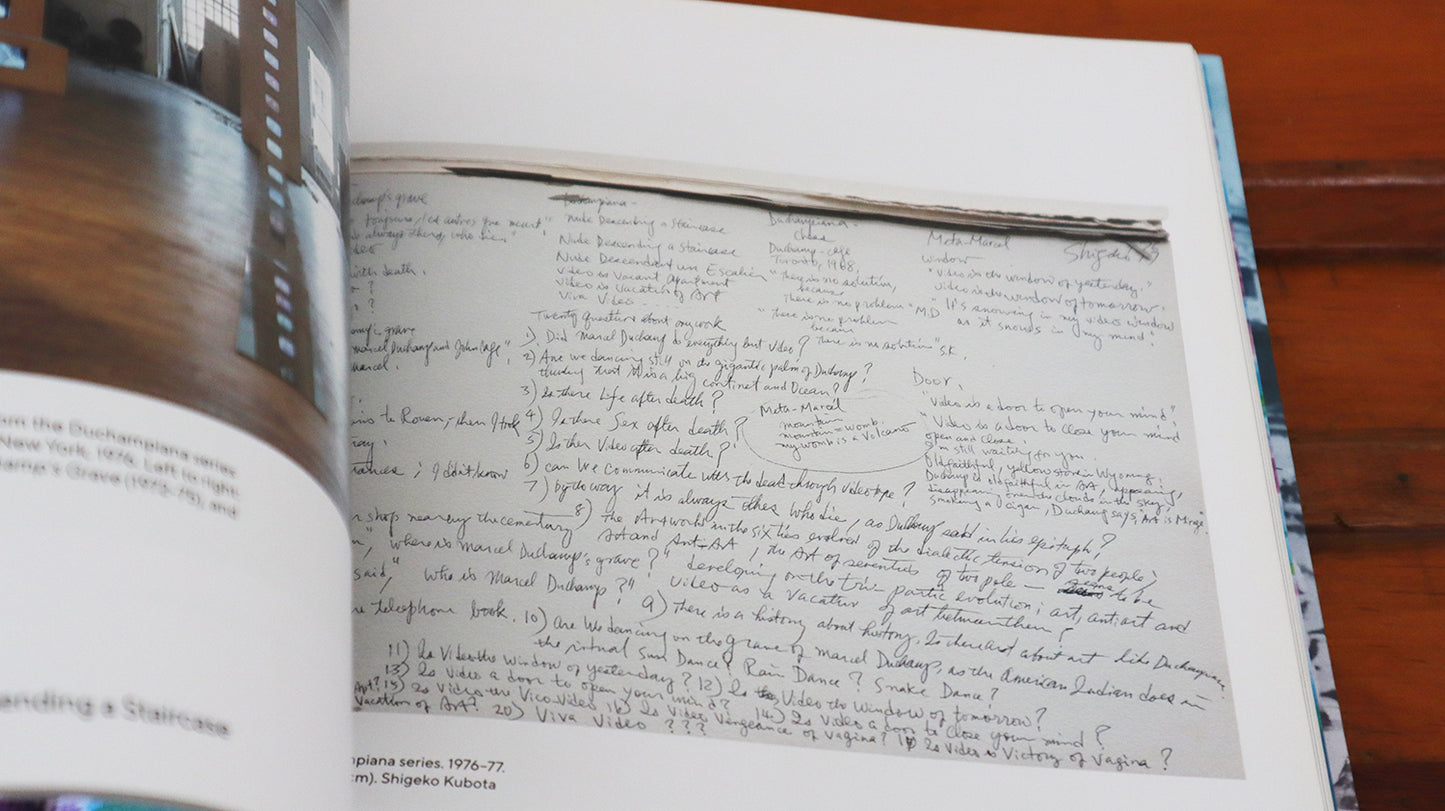 om the Duchampiana series
New York, 1976. Left to right:
amp's Grave (1972–75), and
ending a Staircase
champ's grave
toujours, les autres que meurt"
always others, who dies."
with death.
?
?
grave
marcel Duchamp and John Cage",
marcel.
to Rouen, then I took
; I don't know
shop nearby the cementary
", where is marcel Duchamp's grave?"
said," who is Marcel Duchamp?"
telephone book.
Duchampiana-
Nude Descending a Staircase
Nude Descending a Staircase
Nude Descendant un Escalier
Video is Vacant Apartment
Video is Vacation of Art
Viva Video...
Twenty questions about my work
1). Did Marcel Duchamp do everything but Video?
2) Are we dancing still on the gigantic palm of Duchamp?
thinking that it is a big continet and Ocean?
3) Is there Life after death?
4) Is there Sex after death?
5) Is there Video after death?
6) can We communicate with the dead through Videotape?
7) by the way it is always others who die, as Duchamp said in his epitaph?
8) The Art world in the sixties evolved of the dialectic tension of two people;
Art and Anti-Art, the Art of seventies of two pole — to be
developing on the tri-partic evolution; art, antiart and
Video as a Vacation of art between them?
9) There is a history about history. Is there art about art like Duchampiana
10) Are We dancing on the grave of Marcel Duchamp, as the American Indian does in
the ritual Sun Dance? Rain Dance? Snake Dance?
11) Is Video the Window of yesterday? 12) Is Video the Window of tomorrow?
13) Is Video a door to open your mind? 14) Is Video a door to Close your mind?
Art? 15) Is Video the Vica Video 16) Is Video Vengeance of Vagina? Is Video is Victory of Vagina?
Vacation of Art? 20) Viva Video ???
Duchampiana-
Chess
Duchamp-Cage
Toronto, 1968
"There is no solution,
because
There is no problem" M.D
"There is no problem
because
There is no solution" S.K.
Meta-Marcel
Window
"Video is the window of yesterday."
Video is the window of tomorrow.
It's snowing in my video window
as it snows in my mind.
Shigeko
Meta-Marcel
mountain
mountain = womb.
my womb is a Volcano
Door.
"Video is a door to open your mind"
"Video is a door to Close your mind
open and close.
I'm still waiting for you.
Old faithful, yellowstone in Wyoming.
Duchamp is old faithful in Art, appearing,
disappearing over the clouds in the sky,
Smoking a cigar, Duchamp says, "Art is Mirage".
mpiana series. 1976–77.
cm). Shigeko Kubota